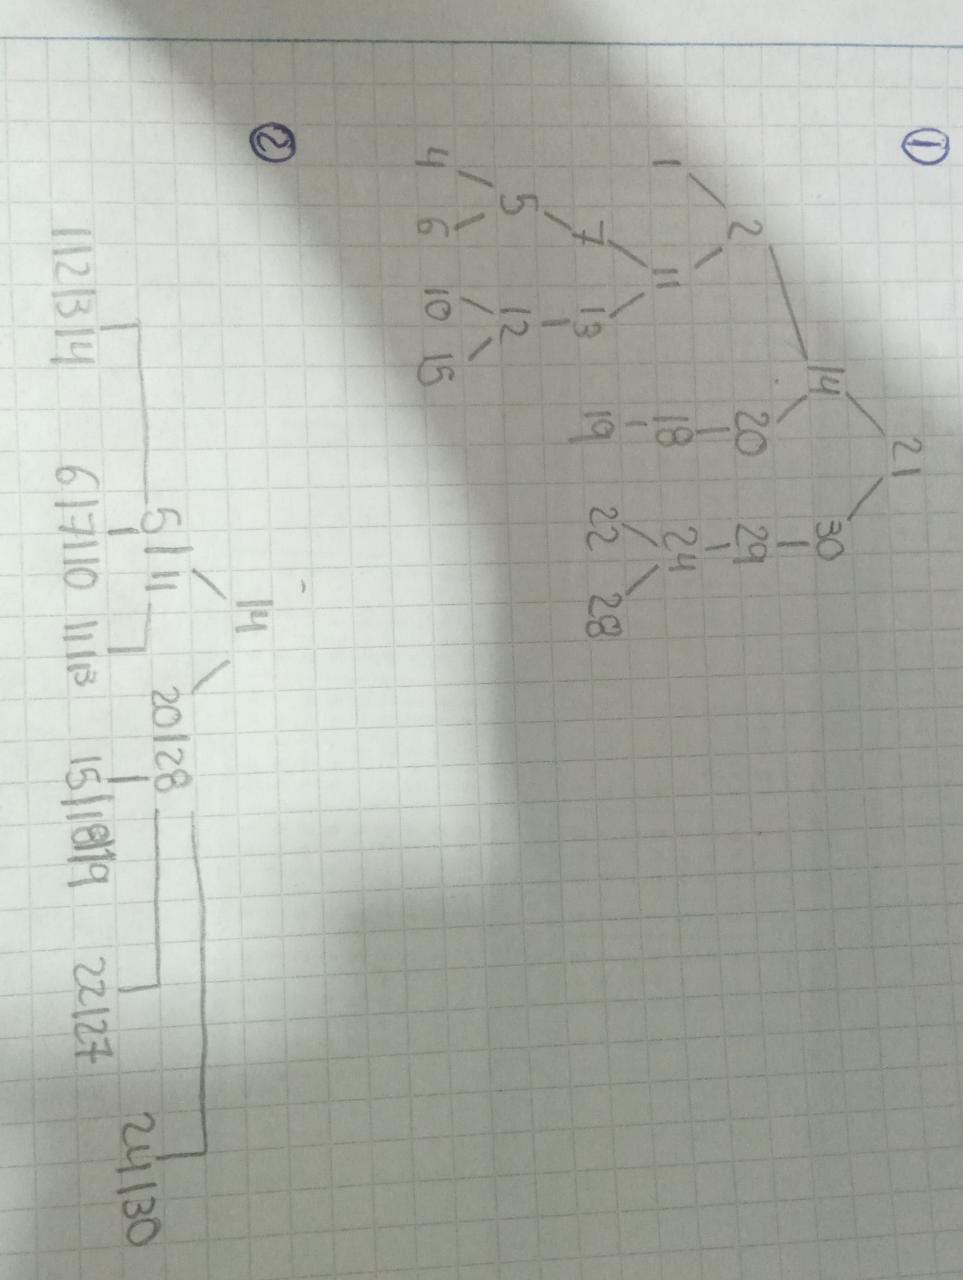 ①
21
14 30
2 20 29
1 11 18 24
7 13 19 22 28
5 12
4 6 10 15
②
14
5|11 20|28
1|2|3|4 6|7|10 11|13 15|18|19 22|27 24|30